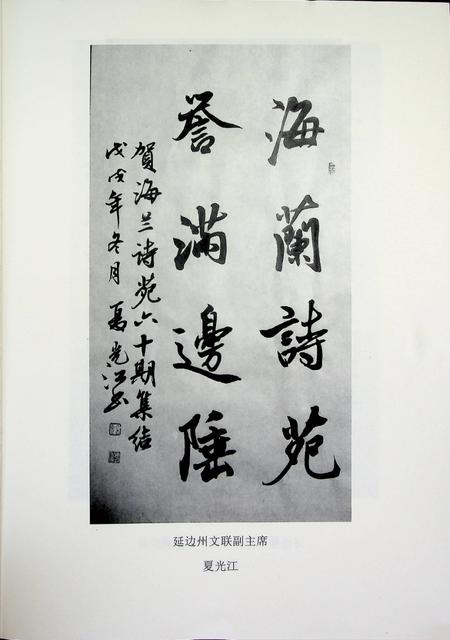 海蘭詩苑
譽滿邊陲
賀海兰詩苑六十期集结
戊戌年冬月夏光江书
延边州文联副主席
夏光江